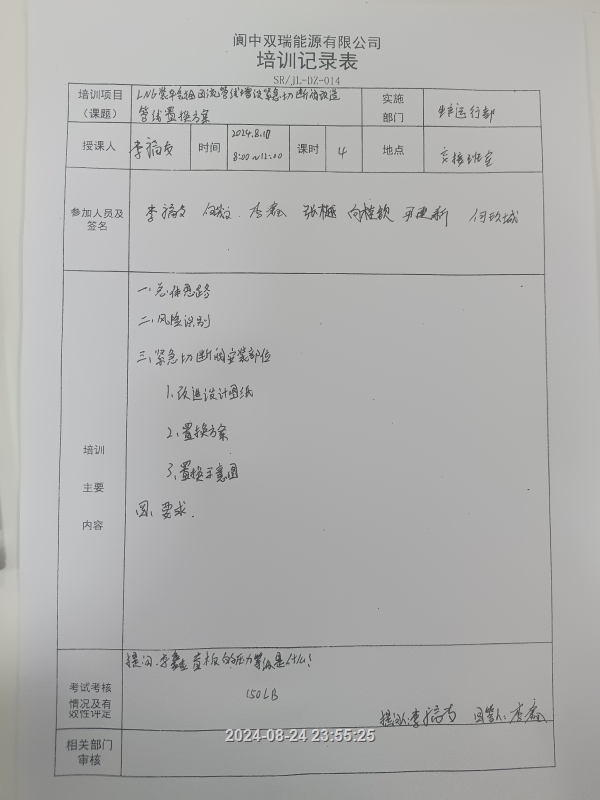 阆中双瑞能源有限公司
培训记录表
SR/JL-DZ-014
培训项目
(课题)
LNG装车台 回流管线增设紧急切断阀改造
管线置换方案
实施
部门
生产运行部
授课人
李福友
时间
2024.8.10
8:00~12:00
课时
4
地点
交接班室
参加人员及
签名
李福友 李鑫 何玖城
培训
主要
内容
一、总体思路
二、风险识别
三、紧急切断阀安装部位
1、改造设计图纸
2、置换方案
3、置换示意图
四、要求.
考试考核
情况及有
效性评定
提问:李鑫 盲板的压力等级是什么?
150LB
提问人:李福友 回答人:李鑫
相关部门
审核
2024-08-24 23:55:25